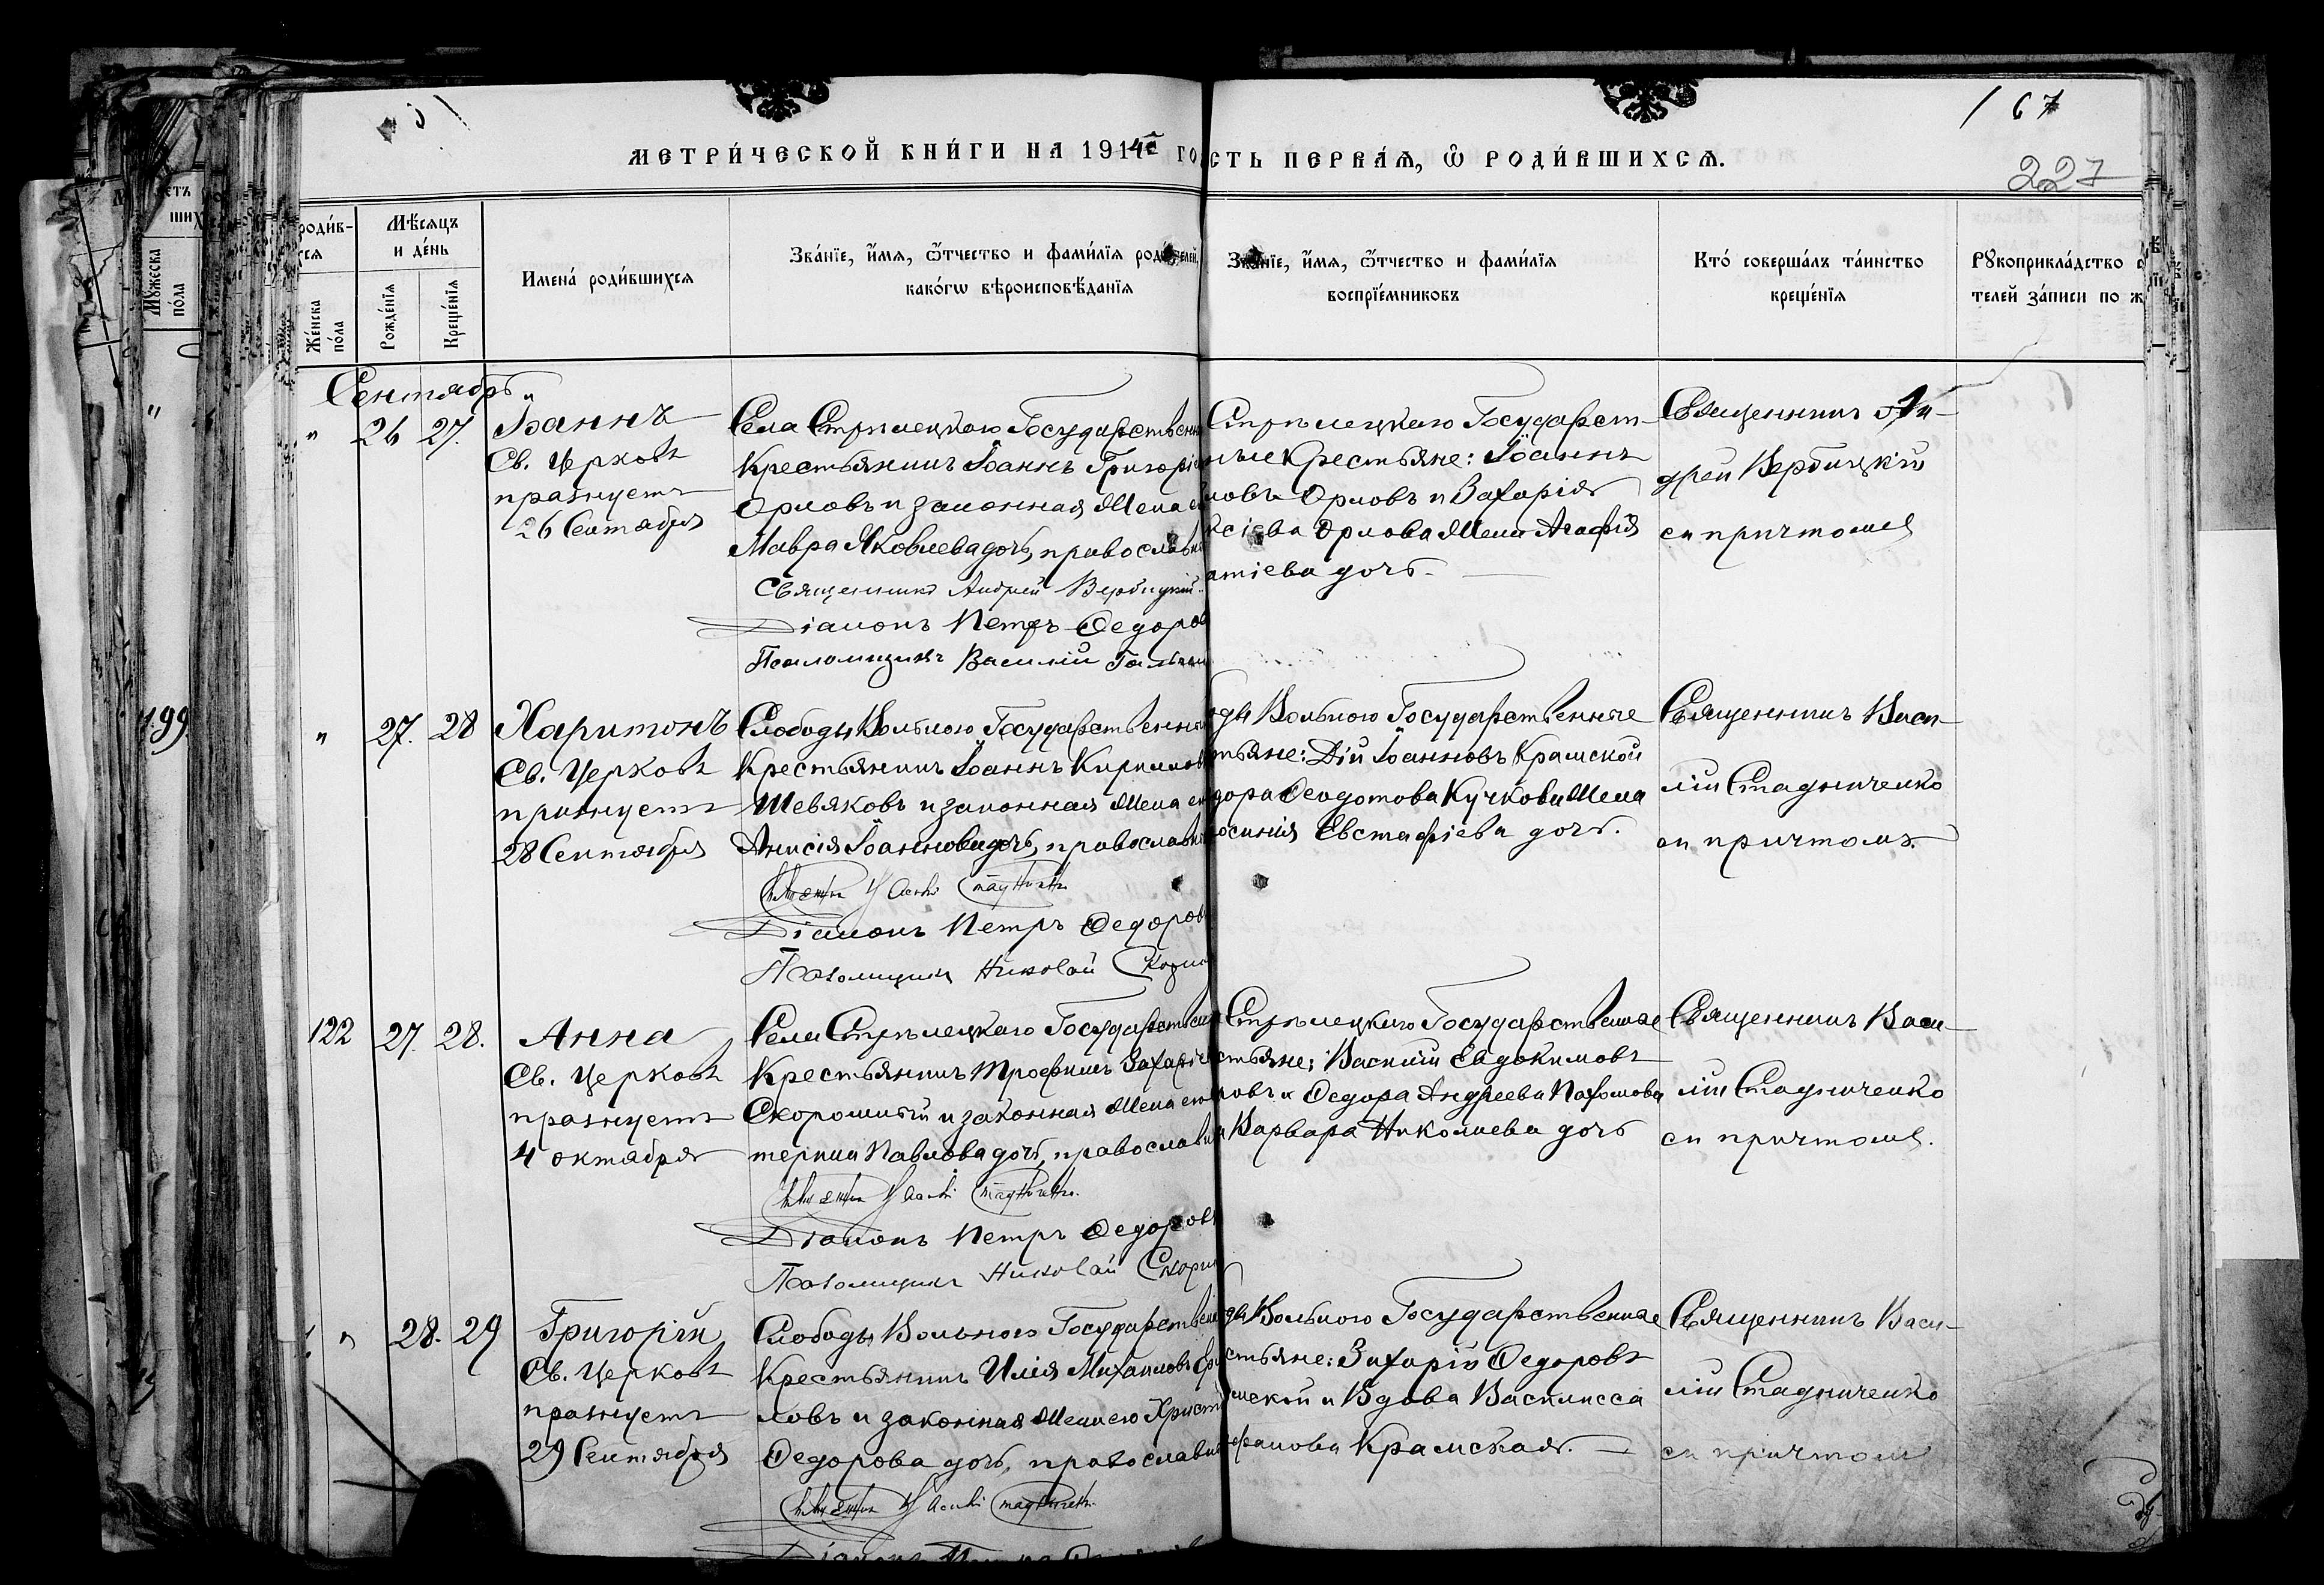 167
227
МЕТРИ́ЧЕСКОЙ КНИ́ГИ НА 1914 ГО
СТЬ ПЕРВА́Я, Ѡ РОДИ́ВШИХСЯ.
роди́в-
ся
Мѣ́сяцъ
и де́нь
Му́жеска
по́ла
Же́нска
по́ла
Рожде́нїя
Креще́нїя
Имена̀ роди́вшихся
Зва́нїе, и҆́мя, ѻ҆́тчество и фами́лїя роди́телей,
како́гѡ вѣроисповѣ́данїя
Зва́нїе, и҆́мя, ѻ҆́тчество и фами́лїя
воспрїе́мниковъ
Кто́ соверша́лъ та́инство
креще́нїя
Рꙋкоприкла́дство
телей за́писи по ж
Сентябрь
" 26 27.
Іоаннъ
Св. Церковь
празнуетъ
26 Сентября
Села Стрѣлецкаго Государственн
Крестьянинъ Іоаннъ Григорі
Орловъ и законная жена е
Мавра Яковлева дочь, православн
Священникъ Андрей Вербицкій
Діаконъ Петръ Ѳедоров
Псаломщикъ Василій
Стрѣлецкаго Государст-
ные Крестьяне: Іоаннъ
ловъ Орловъ и Захарія
сіева Орлова жена Агафія
атіева дочь.
Священникъ Ан-
дрей Вербицкій
съ причтомъ
199
" 27. 28
Харитонъ
Св. Церковь
празнуетъ
28 Сентября
Слободы Вольного Государственн
Крестьянинъ Іоаннъ Кирилов
Шевяковъ и законная жена ег
Анисія Іоаннова дочь, православн
Діаконъ Петръ Ѳедоров
Псаломщикъ Николай
оды Вольного Государственные
стьяне: Дій Іоанновъ Крамской
дора Ѳеодотова Кучкова жена
осинія Евстафіева дочь.
Священникъ Васи-
лій Стадниченко
съ причтомъ.
122 27. 28.
Анна
Св. Церковь
празнуетъ
4 октября
Села Стрѣлецкаго Государствен
Крестьянинъ Трофимъ Захарі
Скорошній и законная жена его
терина Павлова дочь, православн
Діаконъ Петръ Ѳедоров
Псаломщикъ Николай
Стрѣлецкаго Государственные
стьяне: Василій Евдокимовъ
ровъ и Ѳедора Андреева Пахомова
Варвара Николаева дочь
Священникъ Васи-
лій Стадниченко
съ причтомъ.
" 28. 29
Григорій
Св. Церковь
празнуетъ
29 Сентября
Слободы Вольного Государствен
Крестьянинъ Илія Михаиловъ
ловъ и законная жена его Христи
Ѳедорова дочь, православн
ды Вольного Государственные
стьяне: Захарій Ѳедоровъ
мской и Вдова Василисса
ефанова Крамская.
Священникъ Васи-
лій Стадниченко
съ причтом